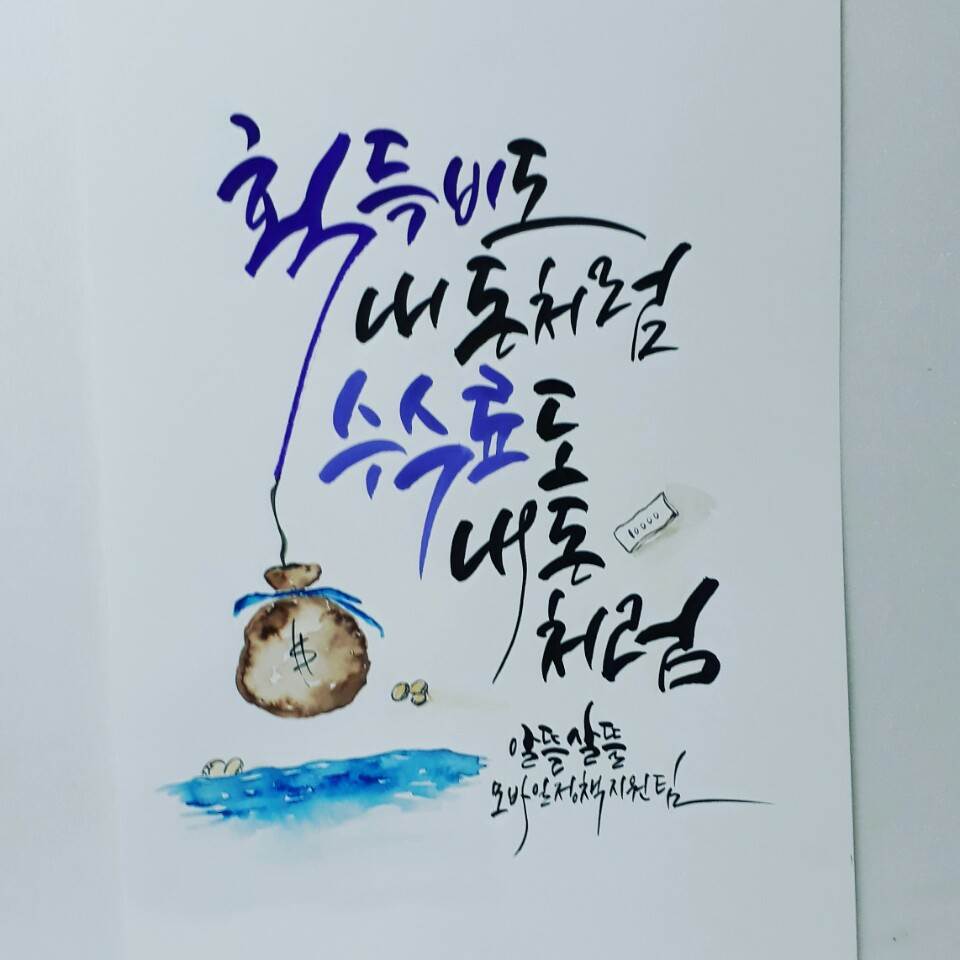 획득비도
내 돈처럼
수수료도
내 돈
10000
처럼
$
알뜰살뜰
모바일정책지원팀